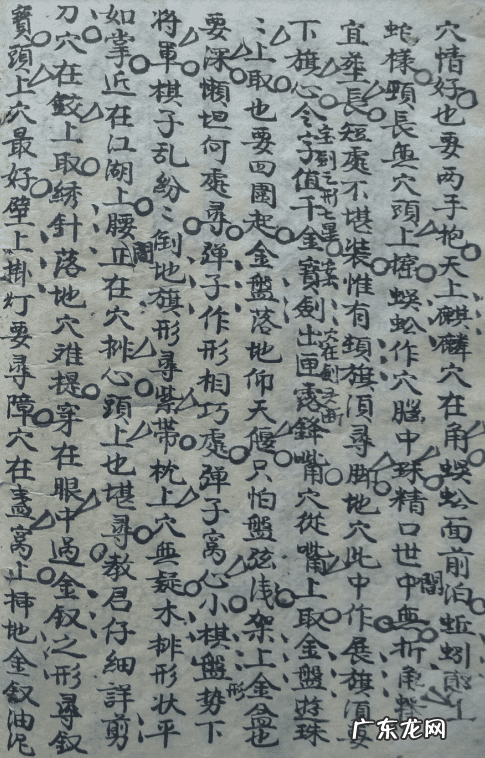 穴情好也要两手抱天上麒麟穴在角蜈蚣面前泊蚯蚓頭上
蛇樣頸長無穴頭上擇蜈蚣作穴腦中珠精口世中無折角
宜葬長短處不堪裝惟有頸旗湏尋脚地穴此中作展旗湏要
下旗心令字值千金寶劍出匣露鋒嘴穴從嘴上取金盤遊珠
〻上取也要四圍起金盤落地仰天偃只怕盤弦浅架上金盆也
要深懶坦何處尋彈子作形相巧處彈子窩心小棋盤勢下
將軍棋子乱紛〻倒地旗形尋紫帶枕上穴無疑木排形状平
如掌近在江湖上腰正在穴排心頭上也堪尋教君仔細詳剪
刀穴在鉸上取綉針落地穴难提穿在眼中過金釵之形尋釵
寶頭上穴最好壁上掛灯要尋障穴在盞窝上揷地金釵油泥